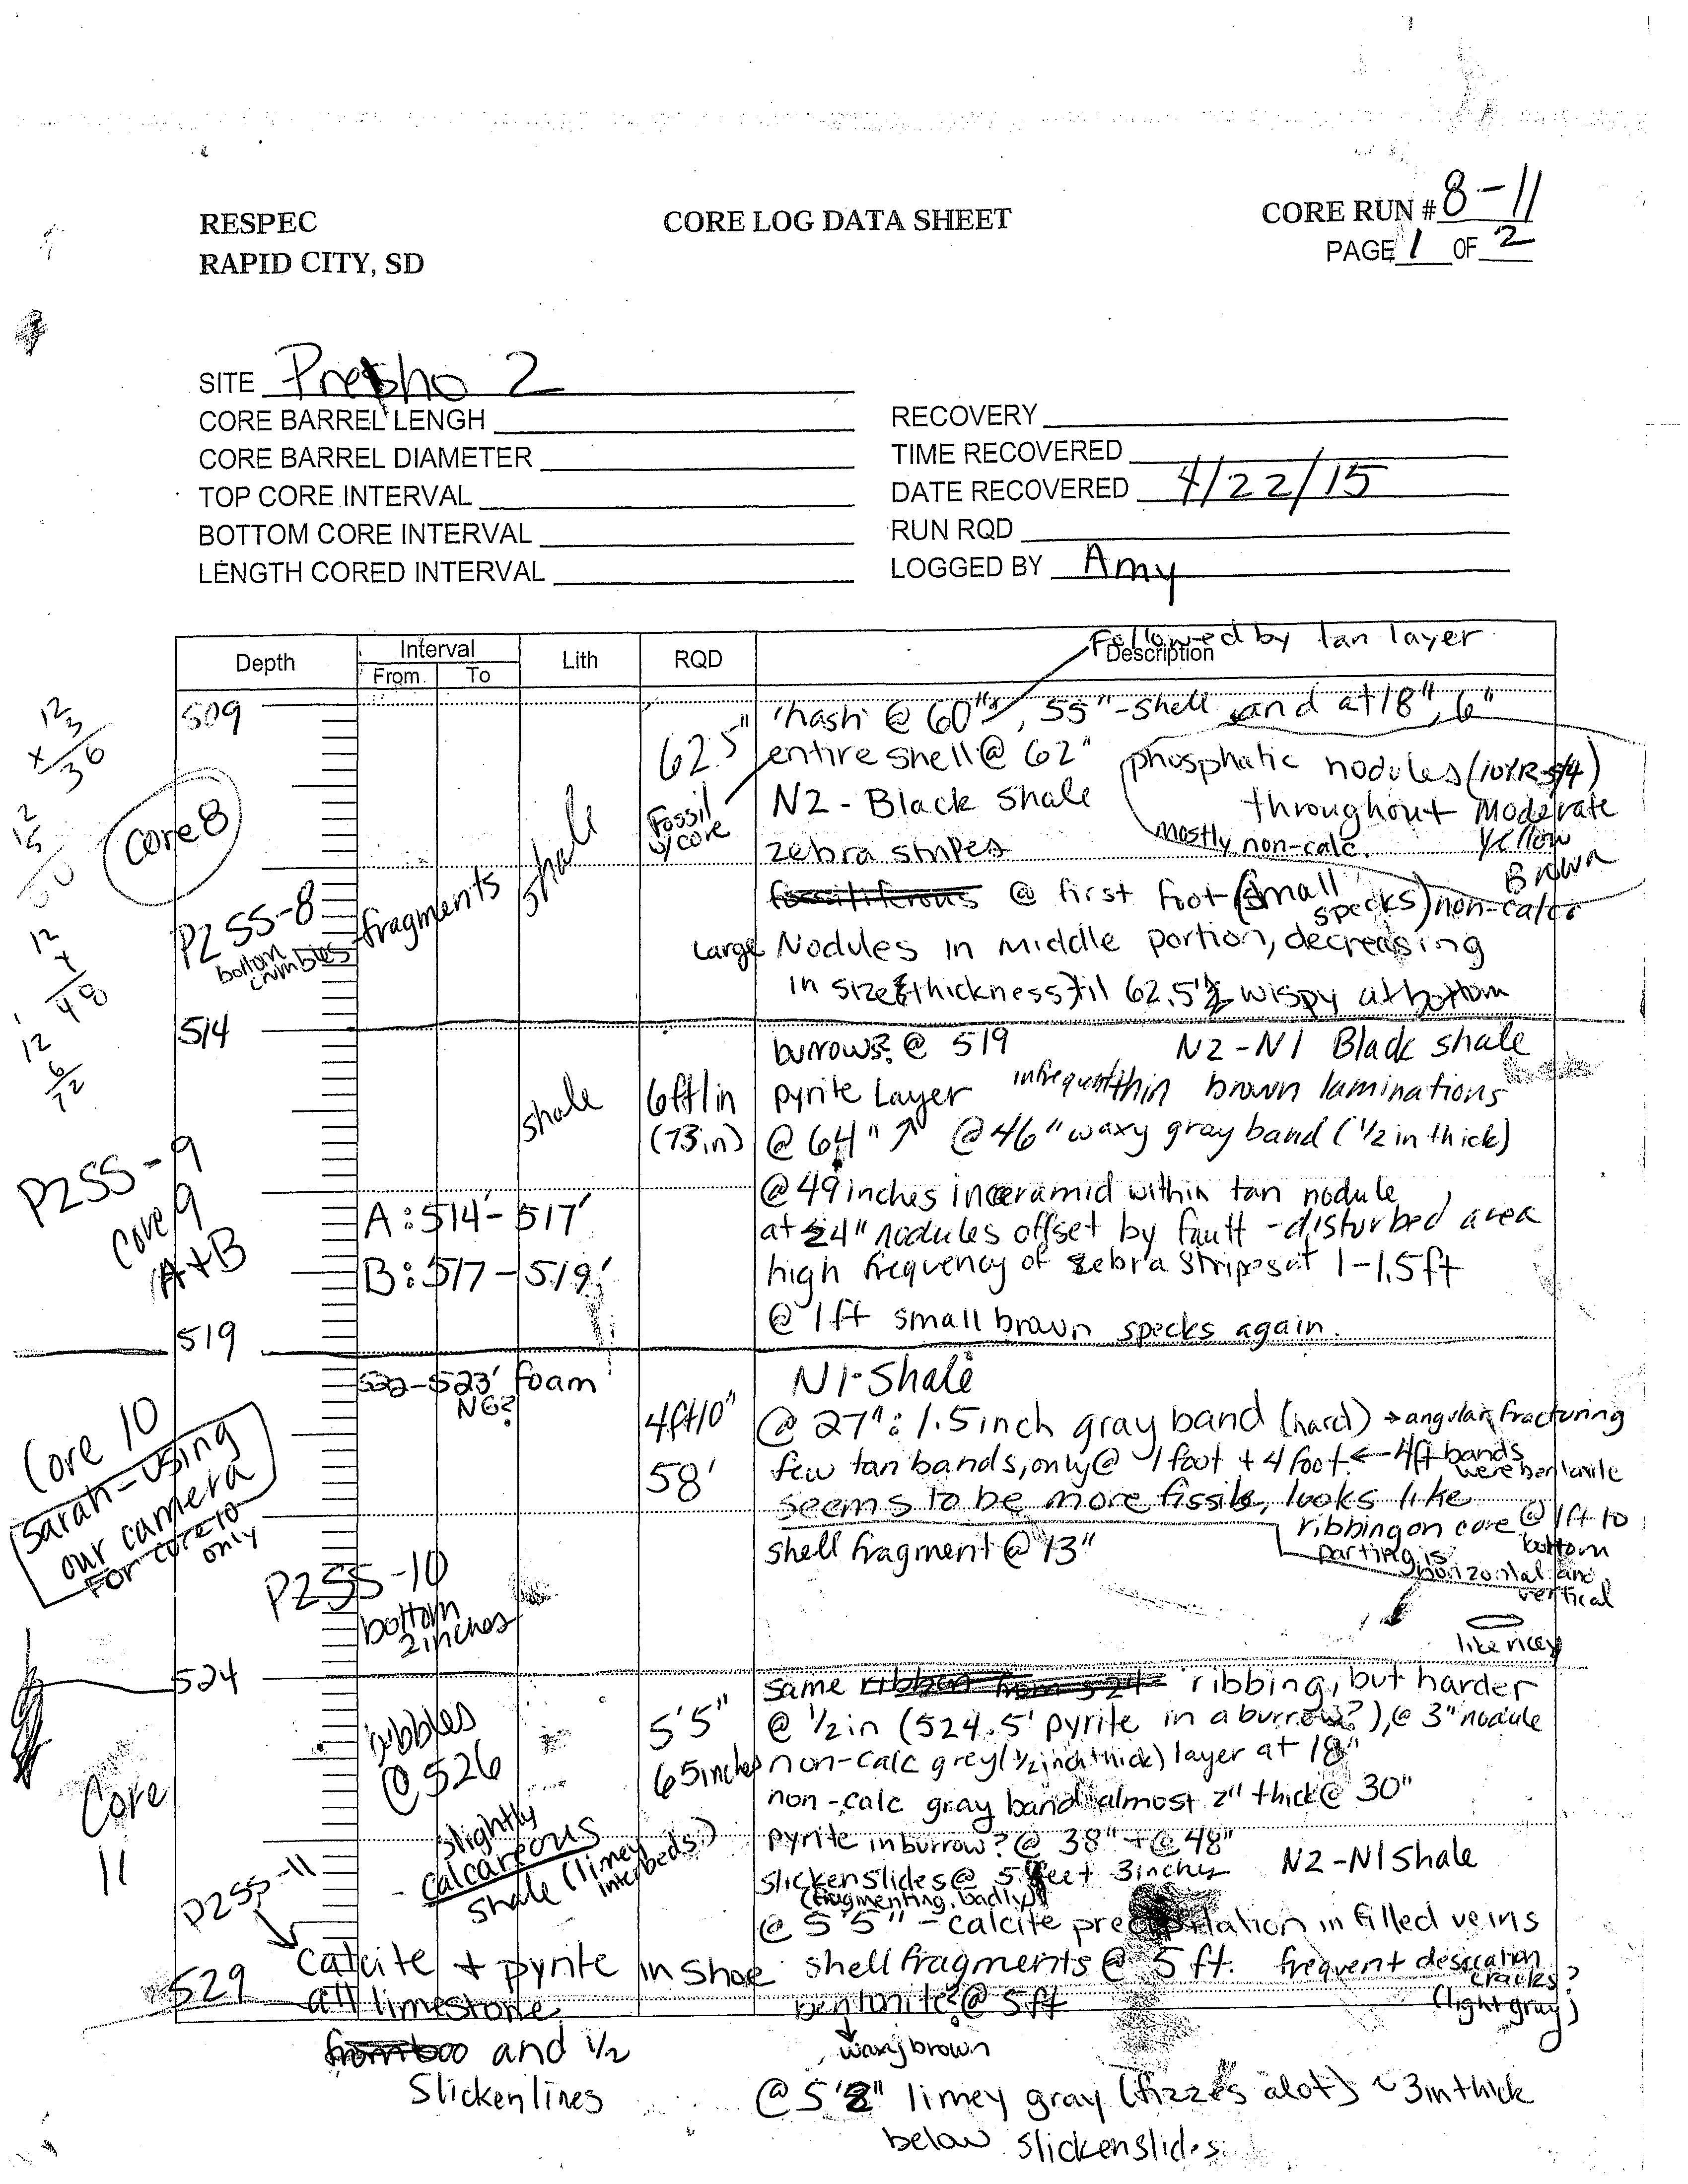 RESPEC
CORE LOG DATA SHEET
CORE RUN # 8-11
RAPID CITY, SD
PAGE 1 OF 2
SITE Presho 2
CORE BARREL LENGH
RECOVERY
CORE BARREL DIAMETER
TIME RECOVERED
TOP CORE INTERVAL
DATE RECOVERED 4/22/15
BOTTOM CORE INTERVAL
RUN RQD
LENGTH CORED INTERVAL
LOGGED BY Amy
Depth
Interval
From
To
Lith
RQD
Description
Followed by tan layer
12
3
x
36
12
5
60
12
4
48
12
6
72
509
Core 8
P2SS-8
bottom
crumbles
fragments
shale
62.5"
Fossil
w/core
'hash' @ 60", 55"-shell and at 18", 6"
entire shell @ 62"
phosphatic nodules (10YR 5/4)
throughout Moderate
Yellow
Brown
mostly non-calc.
N2 - Black Shale
zebra stripes
@ first foot (small
specks) non-calc
Large Nodules in middle portion, decreasing
in size & thickness til 62.5" wispy at bottom
514
P2SS-9
Core 9
A+B
A: 514'-517'
B: 517-519'
shale
6ft 1in
(73in)
burrows? @ 519
N2-N1 Black shale
pyrite Layer
infrequent thin brown laminations
@ 64" ↗ @ 46" waxy gray band (1/2 in thick)
@ 49 inches inoceramid within tan nodule
at 24" nodules offset by fault - disturbed area
high frequency of zebra stripes at 1-1.5ft
@ 1ft small brown specks again.
519
Core 10
Sarah-using
our camera
For core 10
only
P2SS-10
bottom
2 inches
522-523' foam
NG?
4ft10"
58'
N1-Shale
@ 27": 1.5 inch gray band (hard) → angular fracturing
few tan bands, only @ 1 foot + 4 foot ← 4ft bands
were bentonite
seems to be more fissile, looks like
ribbing on core @ 1ft to
bottom
parting is
horizontal and
vertical
shell fragment @ 13"
like ricey
524
Core
11
bubbles
@ 526
- slightly
calcareous
shale (limey
interbeds)
P2SS-11
5'5"
65 inches
same ribbing, but harder
@ 1/2 in (524.5' pyrite in a burrow?), @ 3" nodule
non-calc grey (1/2 inch thick) layer at 18"
non-calc gray band almost 2" thick @ 30"
pyrite in burrow? @ 38" + @ 48"
N2-N1 Shale
slickenslides @ 5 feet 3 inches
(fragmenting badly)
@ 5'5" - calcite precipitation in filled veins
shell fragments @ 5 ft. frequent desiccation
cracks?
(light gray)
bentonite? @ 5ft
waxy brown
529
calcite + pyrite in shoe
all limestone
and 1/2
Slickenlines
@ 5'2" limey gray (fizzes alot) ~ 3in thick
below slickenslides